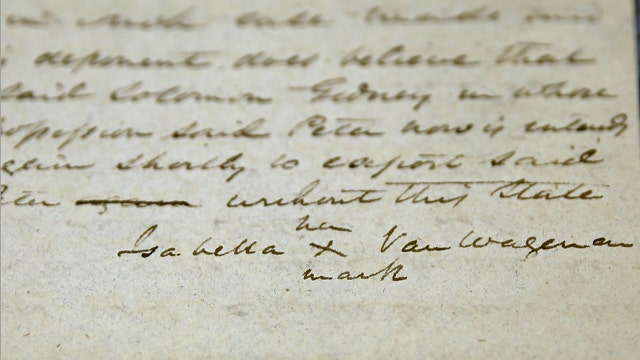 in such case made and
deponent does believe that
said Solomon Gidney in whose
possession said Peter now is intends
again shortly to export said
Peter again without this State
her
Isabella X Van Wagenan
mark